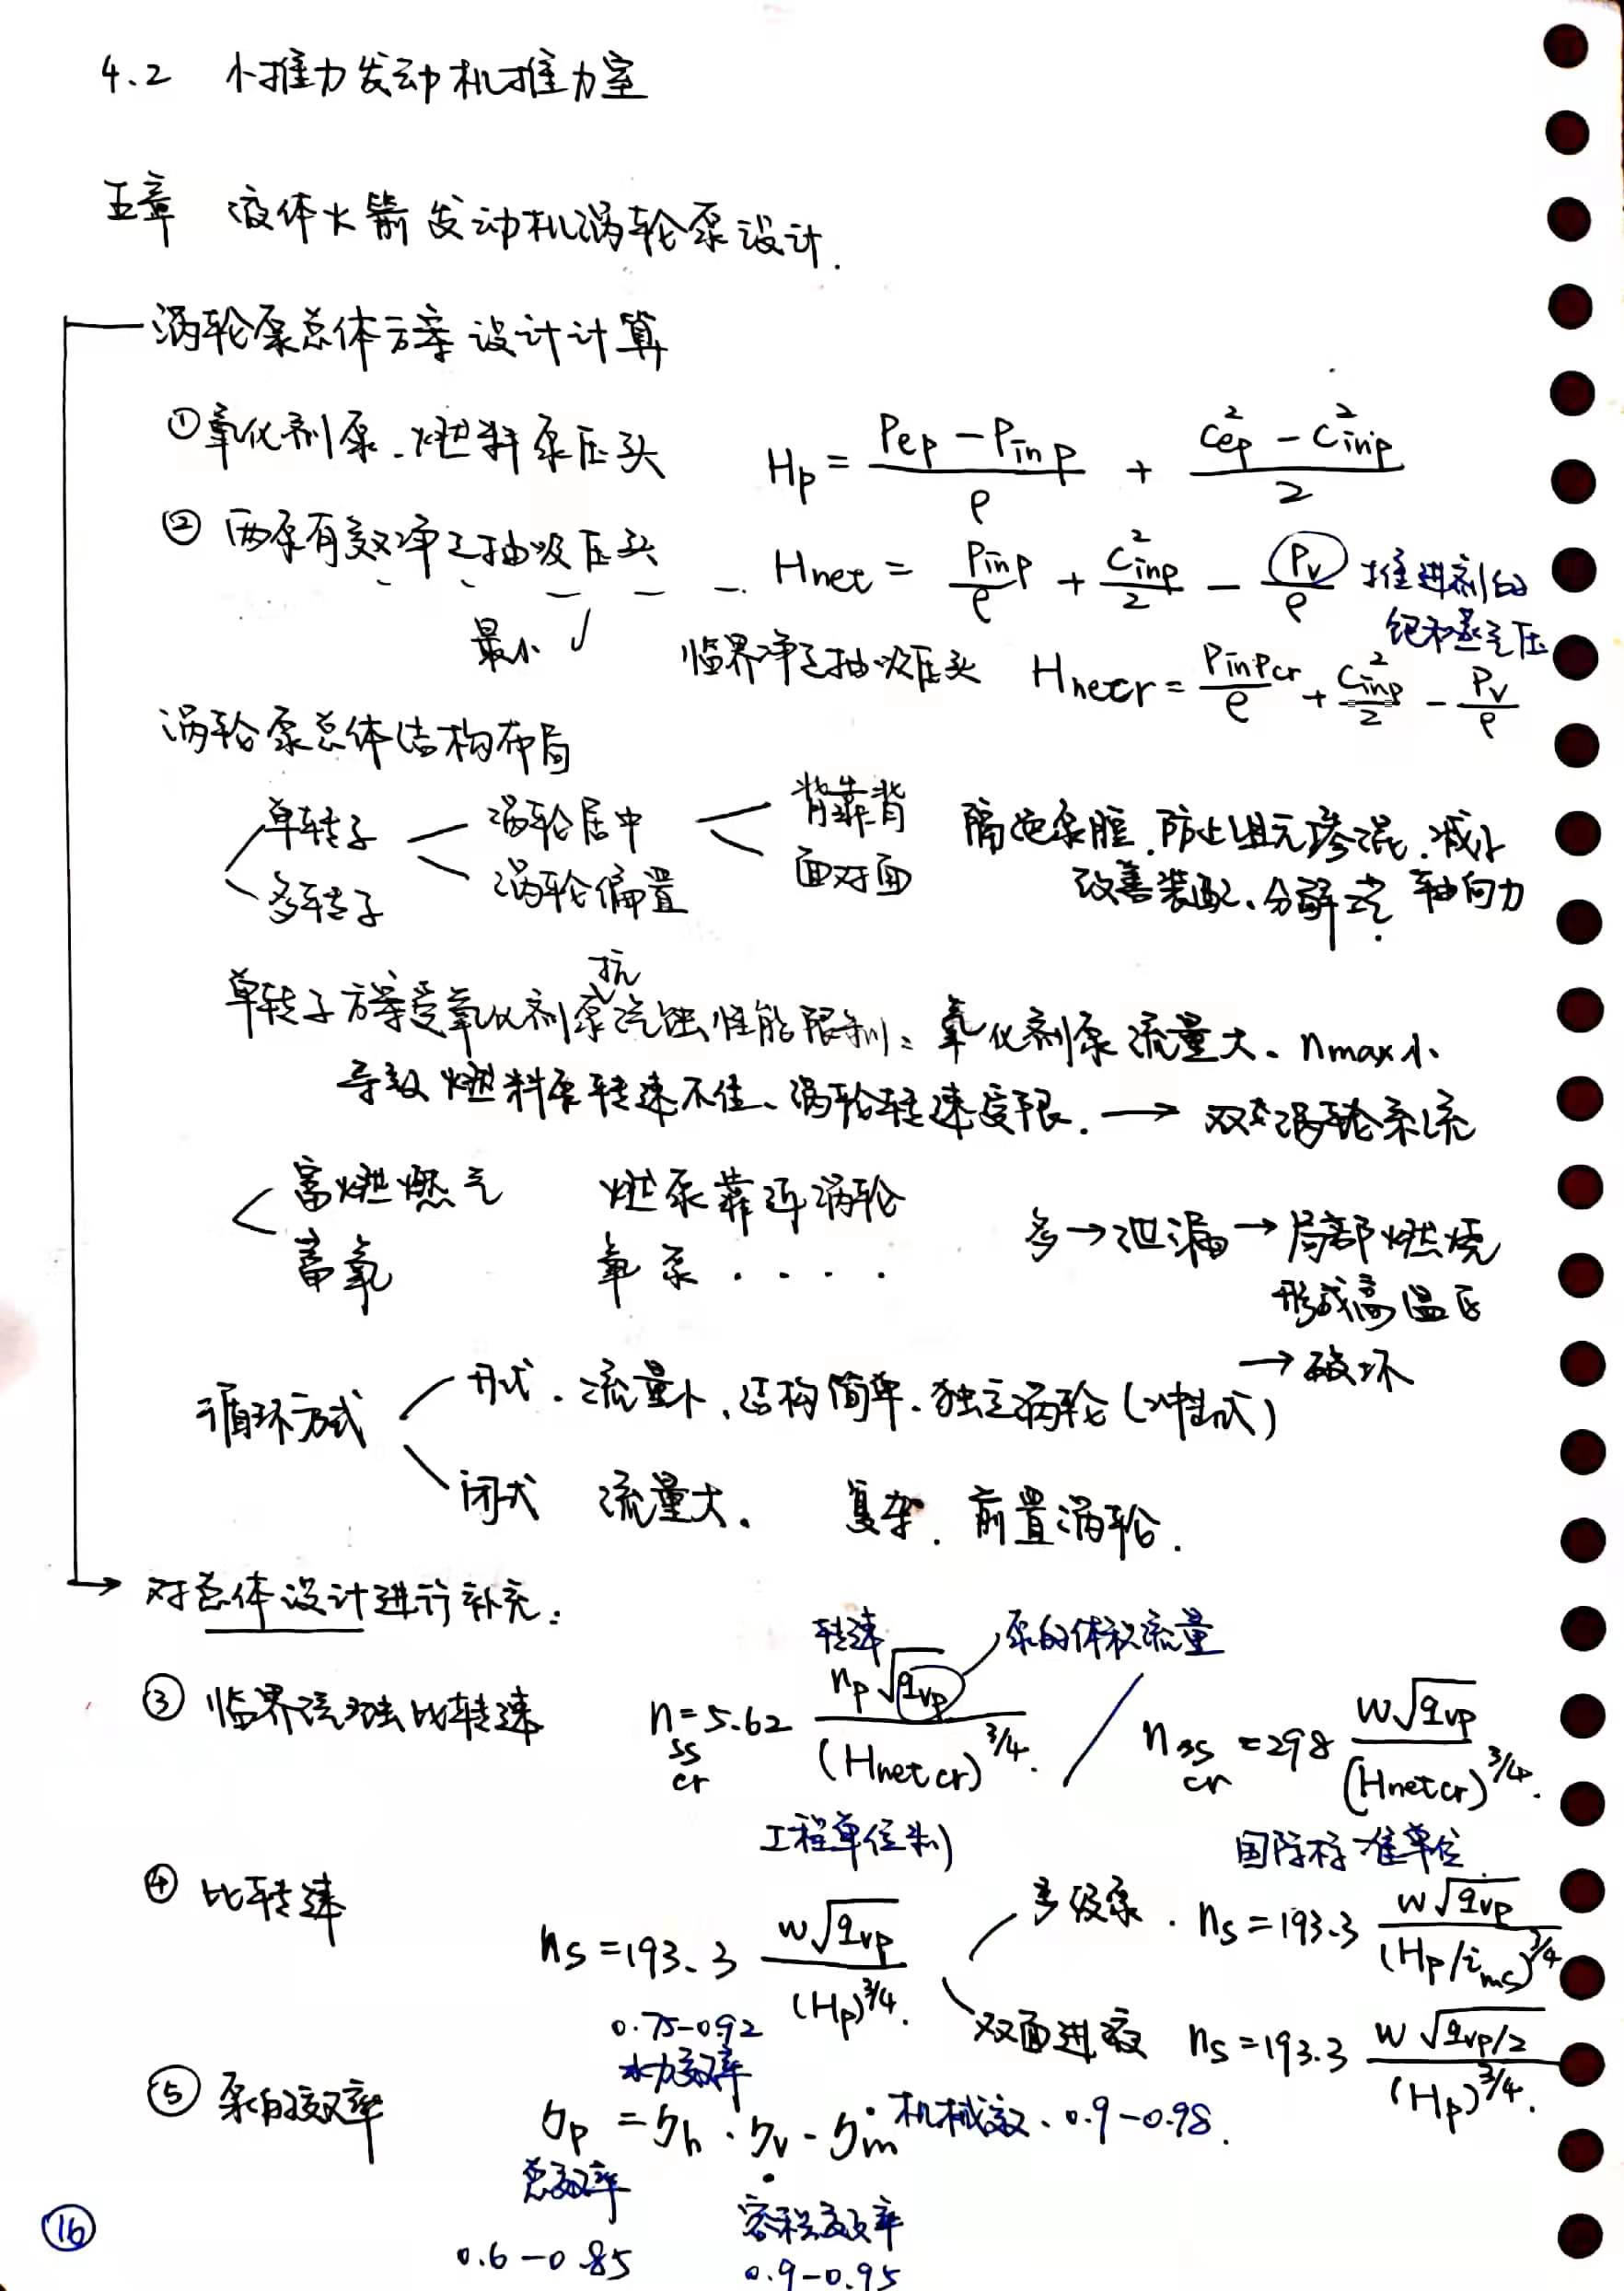 4.2 小推力发动机推力室
五章 液体火箭发动机涡轮泵设计.
涡轮泵总体方案设计计算
①氧化剂泵.燃料泵压头 Hp = (Pep - Pinp)/ρ + (c²ep - c²inp)/2
② 两泵有效净正抽吸压头 Hnet = Pinp/ρ + c²inp/2 - Pv/ρ 推进剂的
饱和蒸气压
最小 √ 临界净正抽吸压头 Hnetcr = Pinpcr/ρ + c²inp/2 - Pv/ρ
涡轮泵总体结构布局
单转子 涡轮居中 背靠背 隔绝泵腔.防止组元渗混.减小
多转子 涡轮偏置 面对面 改善装配、分解工艺. 轴向力
抗
单转子方案受氧化剂泵汽蚀性能限制: 氧化剂泵流量大. nmax小.
导致燃料泵转速不佳、涡轮转速受限. → 双涡轮系统
富燃燃气 燃泵靠近涡轮
富氧 氧泵 . . . . 多→泄漏→局部燃烧
形成高温区
→破坏
循环方式 开式. 流量小, 结构简单. 独立涡轮 (冲击式)
闭式 流量大. 复杂. 前置涡轮.
→ 对总体设计进行补充:
转速 泵的体积流量
③ 临界汽蚀比转速 n ss cr = 5.62 np√qvp/(Hnetcr)^3/4. / n ss cr = 298 w√qvp/(Hnetcr)^3/4.
工程单位制 国际标准单位
④ 比转速 ns = 193.3 w√qvp/(Hp)^3/4. 多级泵. ns = 193.3 w√qvp/(Hp/ims)^3/4
双面进液 ns = 193.3 w√qvp/2/(Hp)^3/4.
0.75-0.92
水力效率
⑤ 泵的效率 ηp = ηh · ηv · ηm 机械效. 0.9-0.98.
总效率 容积效率
0.6-0.85 0.9-0.95
16